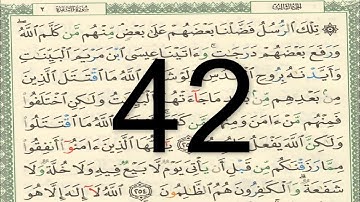 الجزء الثالث سورة البقرة ٢
تِلْكَ الرُّسُلُ فَضَّلْنَا بَعْضَهُمْ عَلَىٰ بَعْضٍ مِّنْهُم مَّن كَلَّمَ اللَّهُ
وَرَفَعَ بَعْضَهُمْ دَرَجَٰتٍ وَءَاتَيْنَا عِيسَى ابْنَ مَرْيَمَ الْبَيِّنَٰتِ
وَأَيَّدْنَٰهُ بِرُوحِ الْقُدُسِ شَآءَ اللَّهُ مَا اقْتَتَلَ الَّذِينَ
مِنۢ بَعْدِهِم مِّنۢ بَعْدِ مَا جَآءَتْهُمُ الْبَيِّنَٰتُ وَلَٰكِنِ اخْتَلَفُوا
فَمِنْهُم مَّنْ ءَامَنَ وَمِنْهُم شَآءَ اللَّهُ مَا اقْتَتَلُوا
وَلَٰكِنَّ اللَّهَ يَفْعَلُ الَّذِينَ ءَامَنُوٓا أَنفِقُوا
مِمَّا رَزَقْنَٰكُم مِّن قَبْلِ أَن يَأْتِىَ يَوْمٌ لَّا بَيْعٌ فِيهِ وَلَا خُلَّةٌ وَلَا
شَفَٰعَةٌ وَالْكَٰفِرُونَ هُمُ الظَّٰلِمُونَ ٢٥٤ اللَّهُ لَآ إِلَٰهَ إِلَّا هُوَ
42